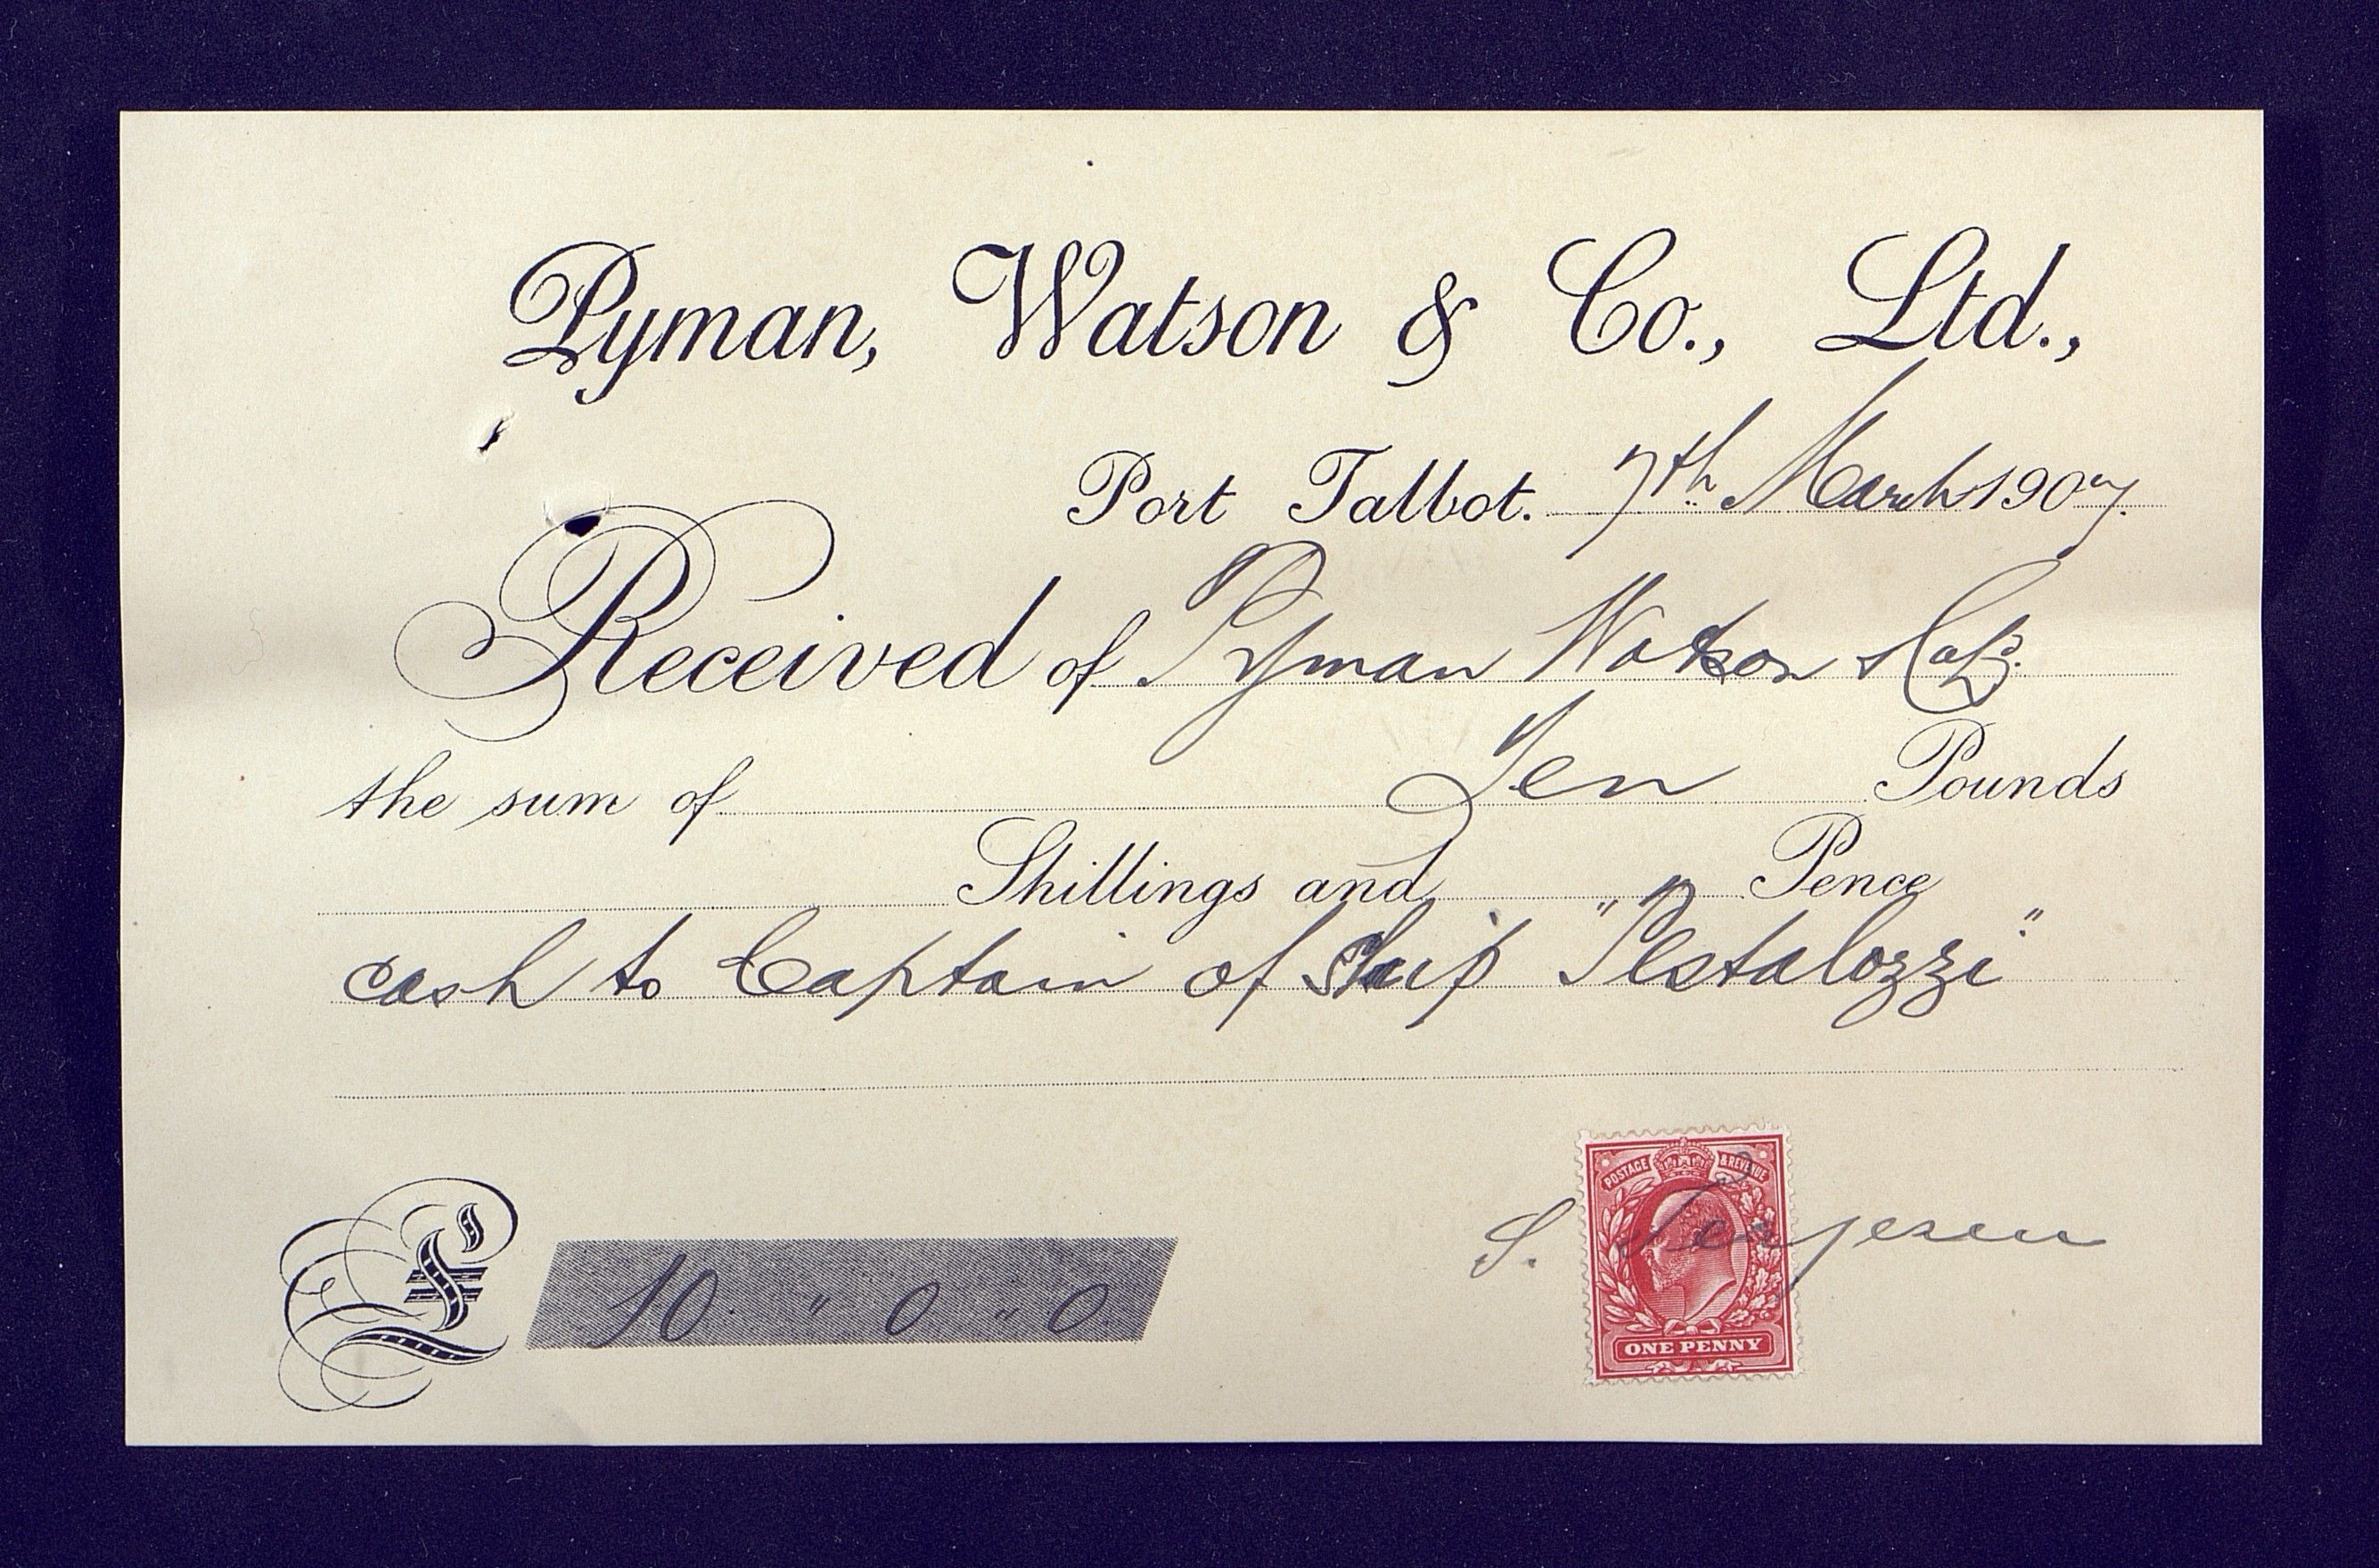 Pyman, Watson & Co., Ltd.,
Port Talbot. 7th March 1907.
Received of Pyman Watson & Co Ld.
the sum of Ten Pounds
Shillings and Pence
cash to Captain of Ship "Pestalozzi"
POSTAGE & REVENUE
S. Terjesen
£ 10 " 0 " 0
ONE PENNY